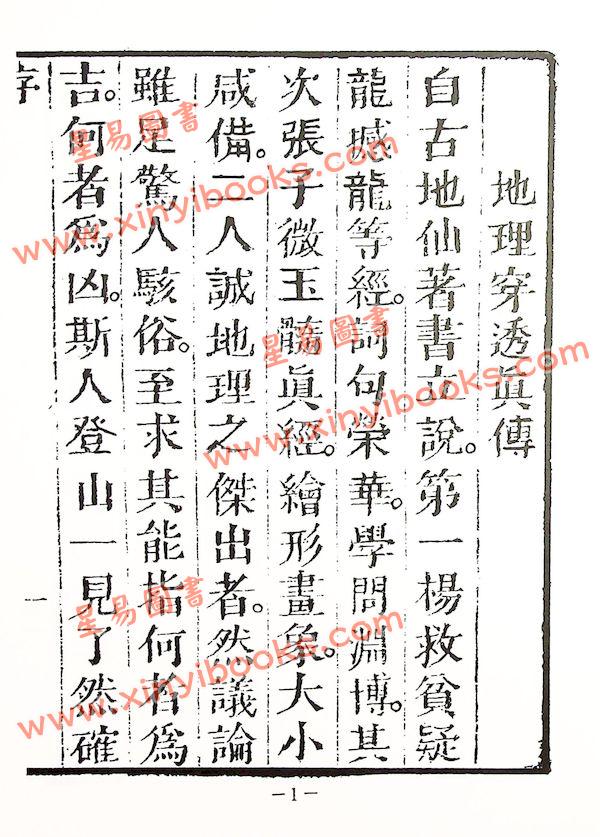 地理穿透眞傳
自古地仙著書立說。第一楊救貧疑
龍撼龍等經。詞句榮華。學問淵博。其
次張子微玉髓眞經。繪形畫象。大小
咸備。二人誠地理之傑出者。然議論
雖足驚人駭俗。至求其能指何者爲
吉。何者爲凶。斯人登山一見了然確
序
一
－1－
星易圖書
www.xinyibooks.com
星易圖書
www.xinyibooks.com
星易圖書
www.xinyibooks.com